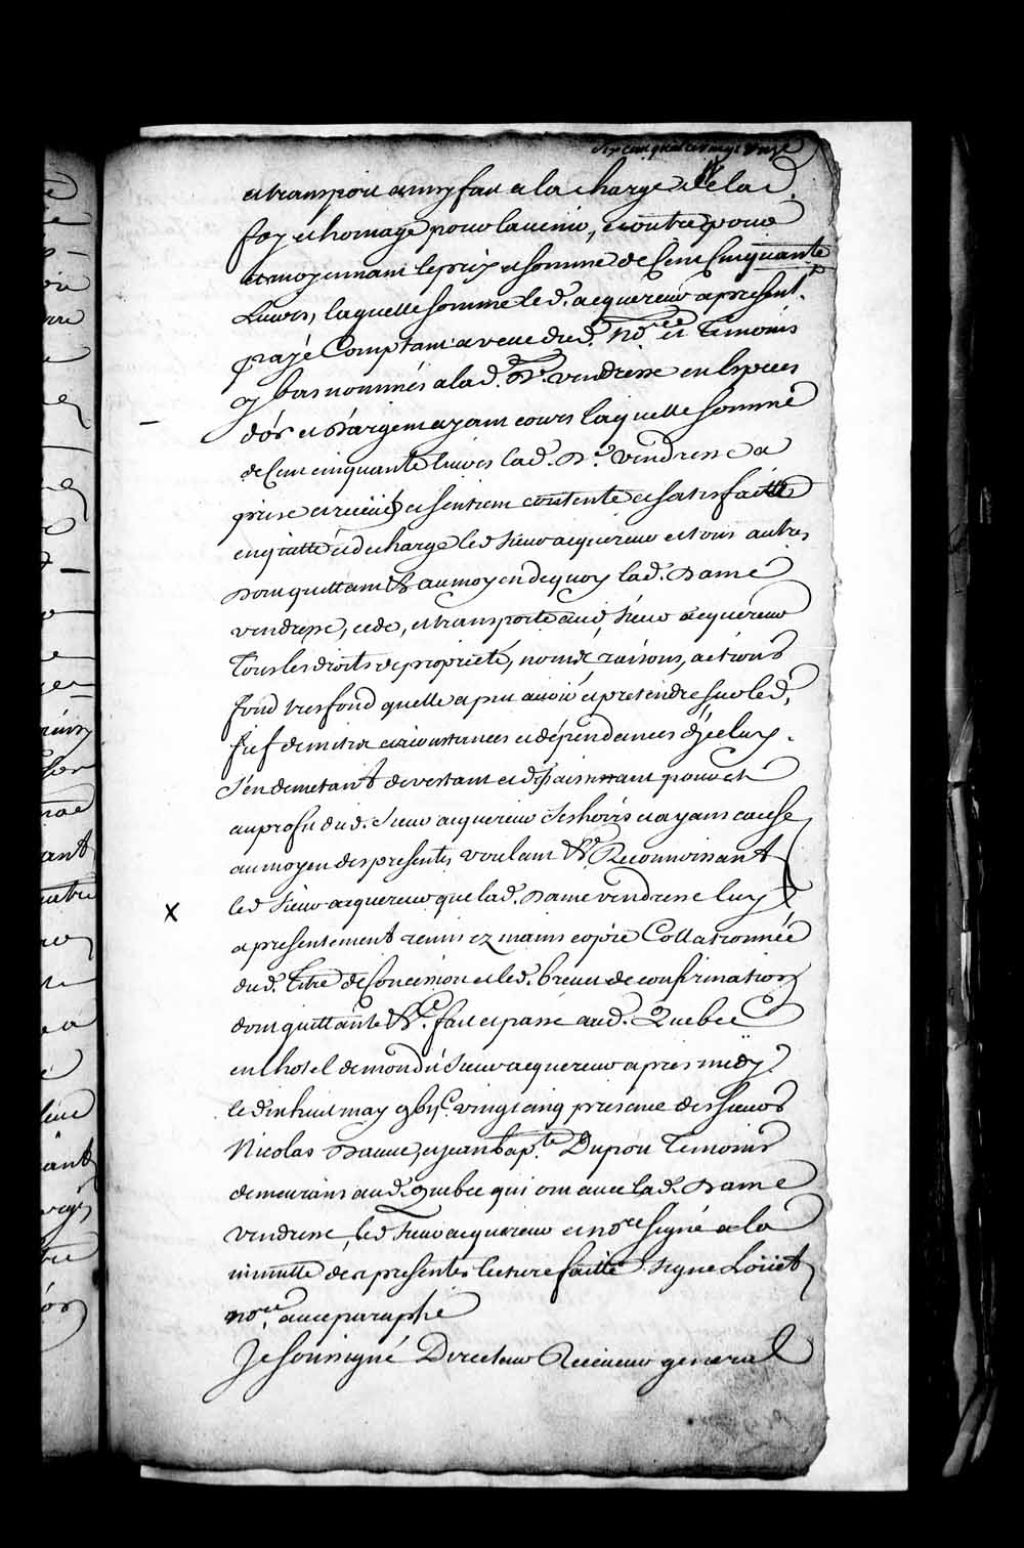 six cent quatre vingt onze
et transport ainsy fait a la charge de lad.
foy et homage pour lavenir, et outre pour
et moyennant le prix et somme de Cent Cinquante
Livres, laquelle somme led. acquereur a present.
payé Comptant a veüe dud. No.re et Temoins
cy bas nommés a lad. De. vendresse en Especes
d'or et D'argent ayant cours laquelle somme
de Cent cinquante livres lad. De. vendresse a
prise et reciie et sentient contente et satisfaitte
en quitte et decharge led sieur acquereur et tous autres
Dont quittance &. au moyen de quoy lad. Dame
vendresse, cede, et transporte aud sieur acquereur
Tous les droits de proprieté, noms, raisons, actions
fond tres fond quelle a peu avoir et pretendre sur led.
fief de mitis circonstances et dépendances d'jceluy.
S'en demetant devestant et desaisissant pour et
au profit dud. sieur acquereur ses hoirs et ayans cause
au moyen des presentes voulant &a. Reconnoissant
led sieur acquereur que lad. Dame vendresse luy
X
a presentement remis ez mains copie Collationnée
dud. titre de Concession et led. brevet de confirmation
dont quittance &c. fait et passé aud. Quebec
en lhotel de mond. Sieur acquereur apres midy
le dixhuit may gbijc. vingt cinq presence des sieurs
Nicolas et jean bap.te Dupon Temoins
demeurans aud. quebec qui ont avec lad. Dame
vendresse, led sieur acquereur et no.re signé a la
minutte des presentes lecture faitte signe Loüet
no.re avec paraphe
Je soussigné Directeur Receveur general